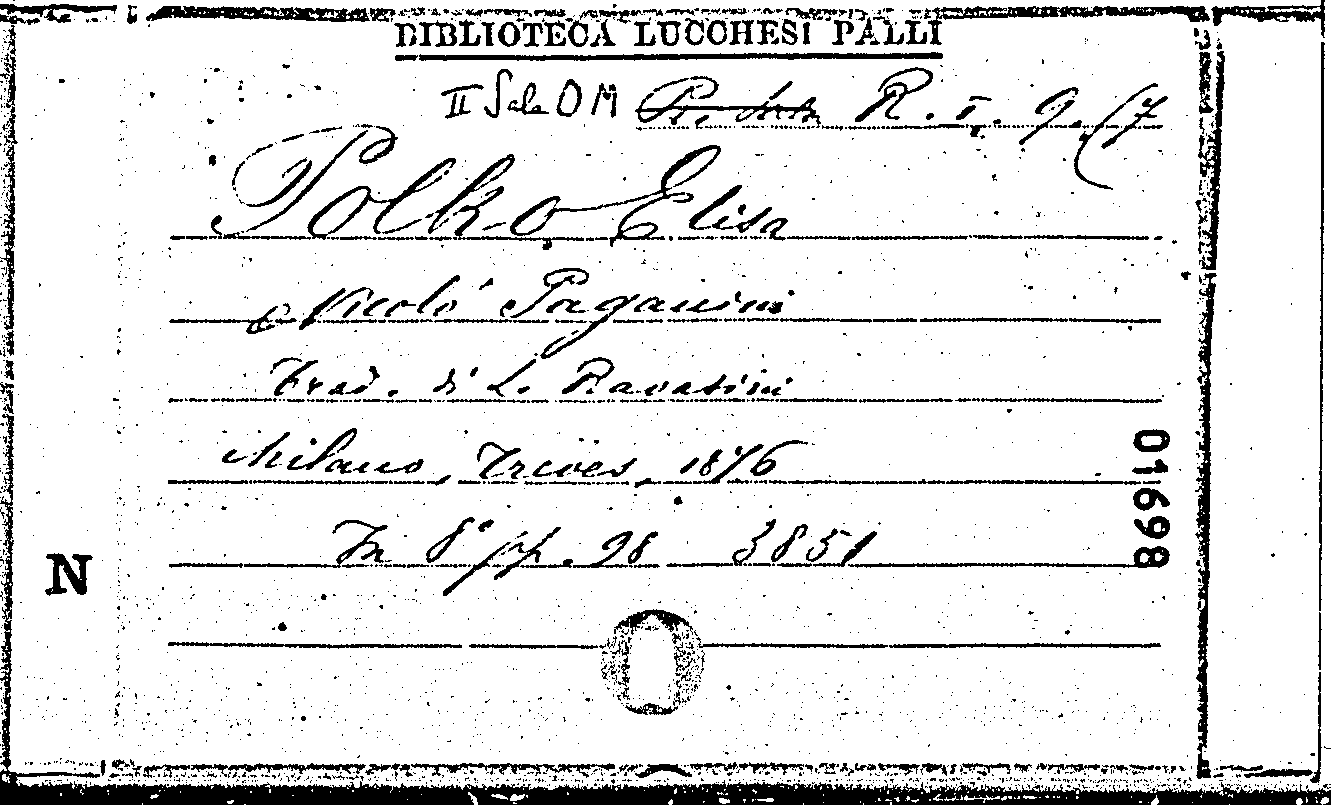 BIBLIOTECA LUCCHESI PALLI
II Sala OM R. I. 9. (7
Polko Elisa
Nicolò Paganini
Trad. di L. Ravasini
Milano, Treves, 1876
In 8° pp. 98 3851
01698
N